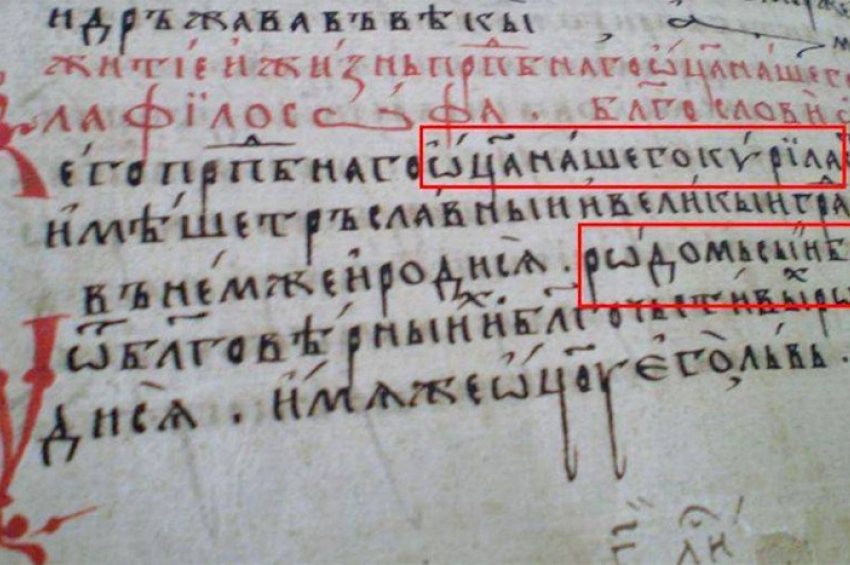 идръжававъвѣкы
житїеижизньпрⷪпбнагоѡ҃ц҃анашег
лафїлосѡфа. бл҃гословиѡ
егопрⷪпбнагоѡ҃ц҃анашегокѵрїла
имѣшетръславныиивеликыигра
вънемжеиродисѧ. рѡдомьсыинб
ѿбл҃говѣрныиибл҃гочьстивыиры
дисѧ. имѧжеѡц҃ѹегольвь.